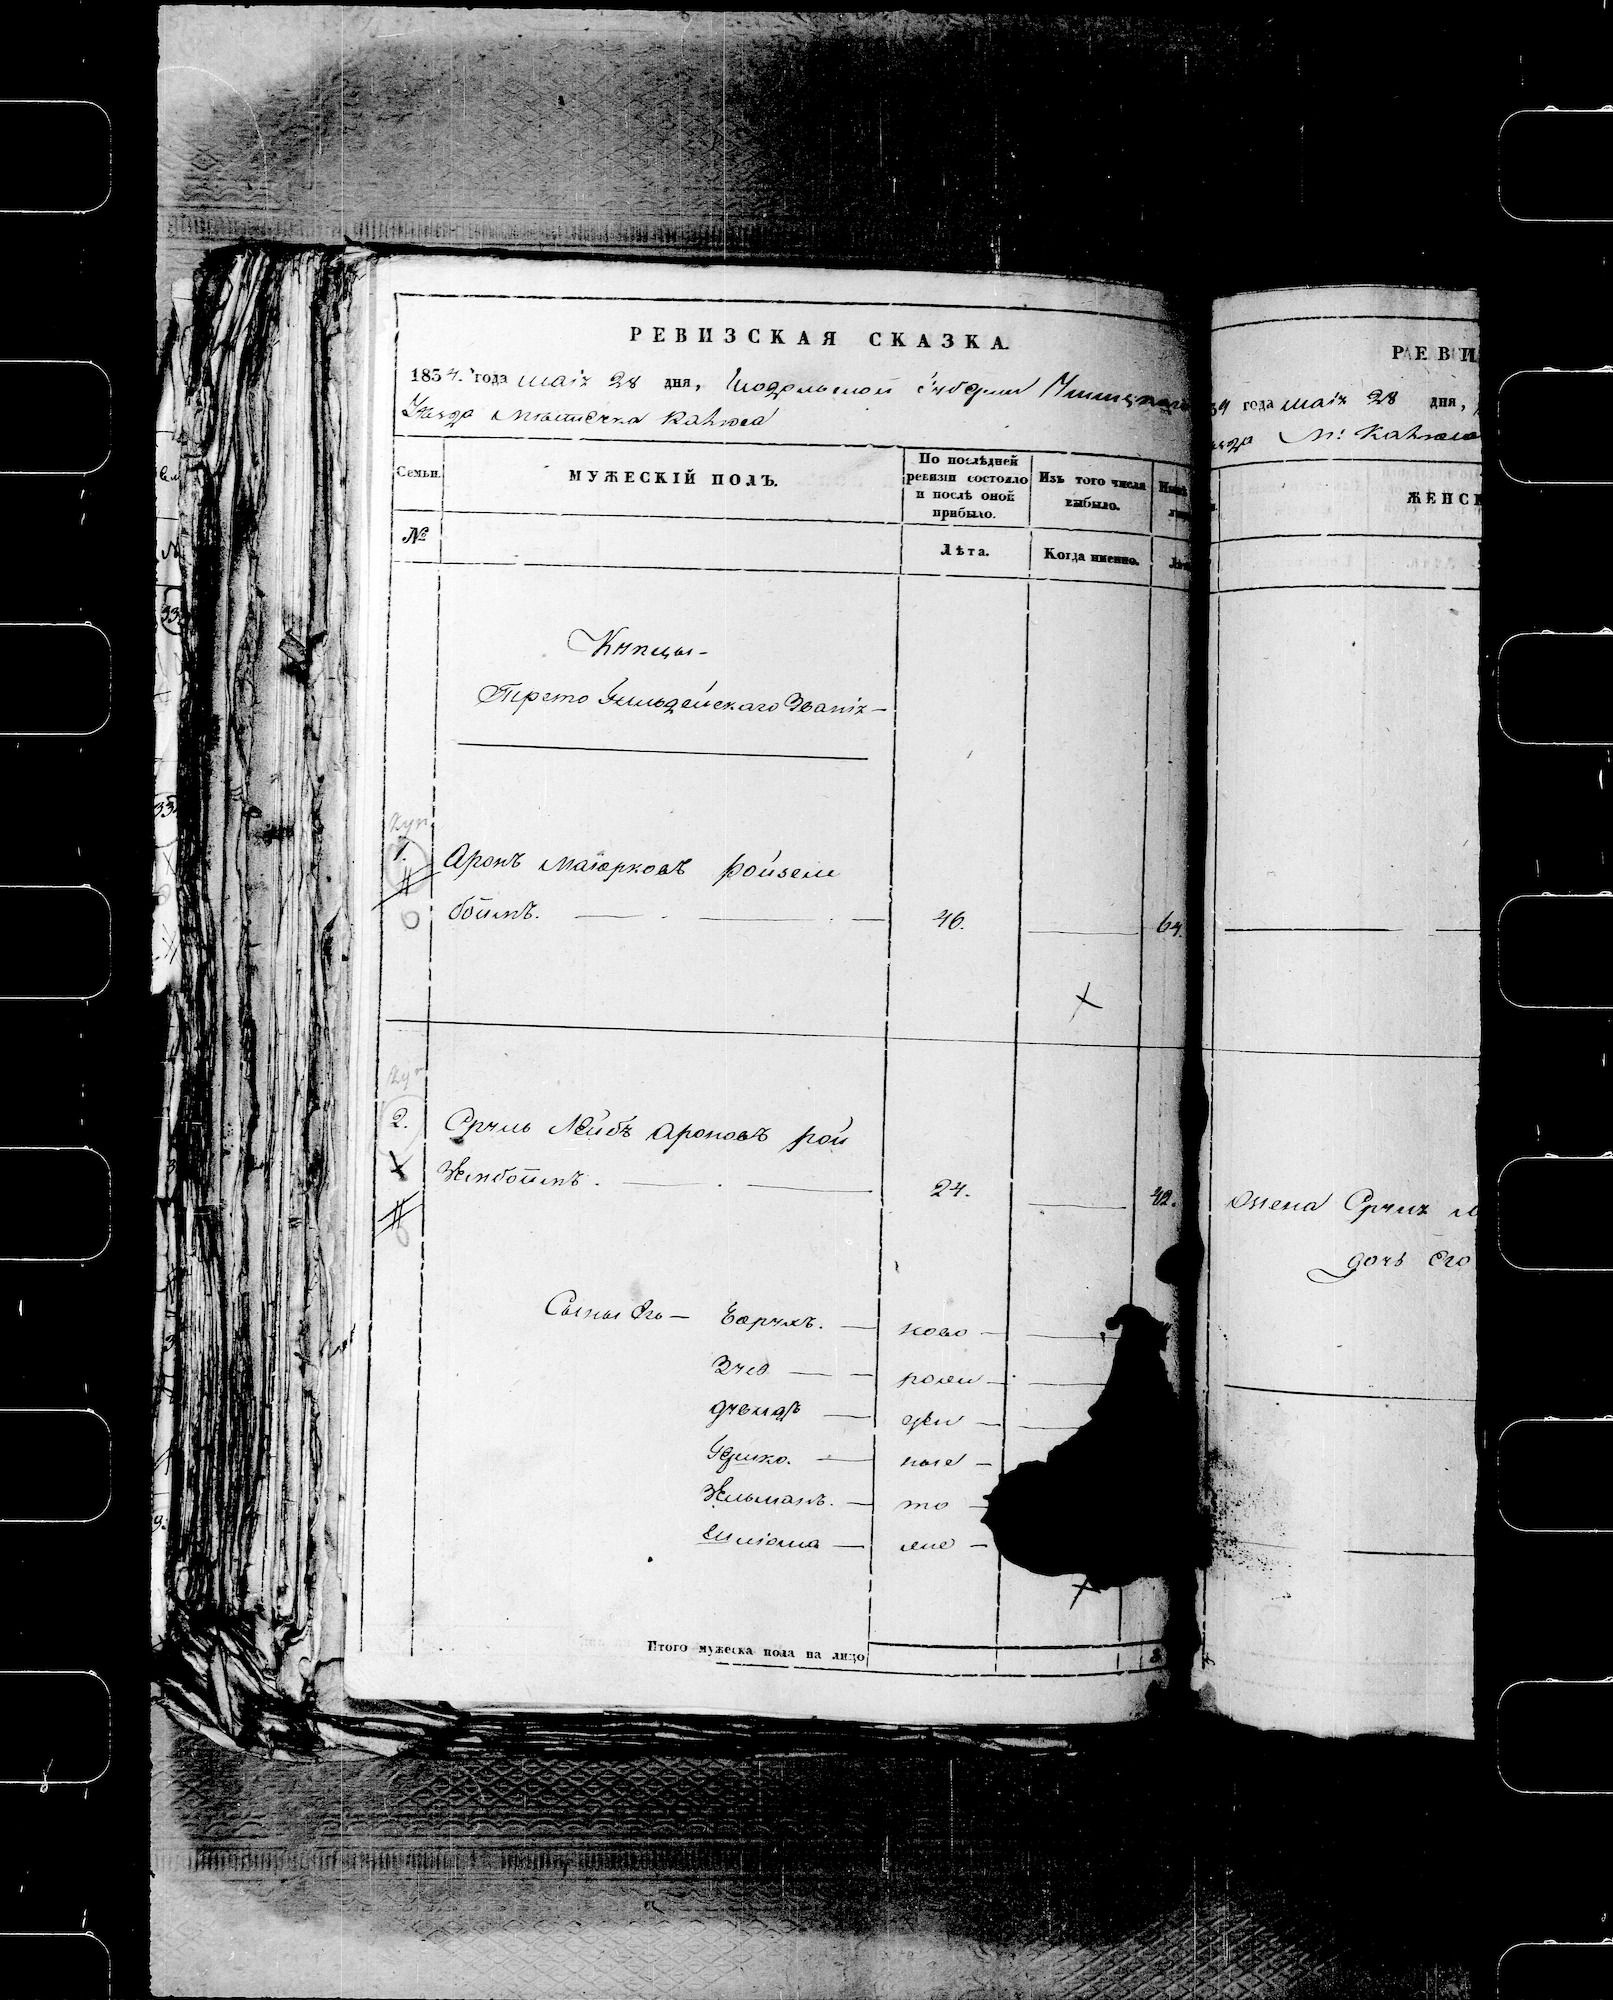 РЕВИЗСКАЯ СКАЗКА.
1834. года маія 28 дня, Подольской Губерніи
Уезда Местечка Калюса
Семьи.
МУЖЕСКІЙ ПОЛЪ.
По послѣдней ревизіи состояло и послѣ оной прибыло.
Изъ того числа выбыло.
№
Лѣта.
Когда именно.
Купцы-
Трето Гильдейскаго Званія-
Куп
1. Аронъ Маіорковъ Ройзем
боймъ. 46. 64.
Куп
2. Сруль Лейбъ Ароновъ Рой
зембоймъ. 24. 42.
Сыны Его- Борухъ. ново
рож
ден
ные
Зельманъ. то
Шліома
Итого мужеска пола на лицо
РЕВИ
34 года маія 28 дня,
М: Калюса
ЖЕНСК
жена Срула
дочь Его